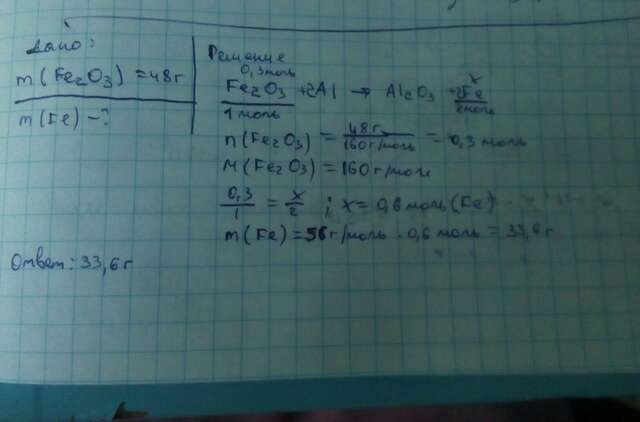 Дано:
m(Fe2O3) = 48г
m(Fe) - ?
Решение
0,3моль x
Fe2O3 + 2Al → Al2O3 + 2Fe
1 моль 2моль
n(Fe2O3) = 48г / 160г/моль = 0,3 моль
M(Fe2O3) = 160г/моль
0,3/1 = x/2 ; x = 0,6 моль (Fe)
m(Fe) = 56г/моль · 0,6 моль = 33,6г
Ответ: 33,6г